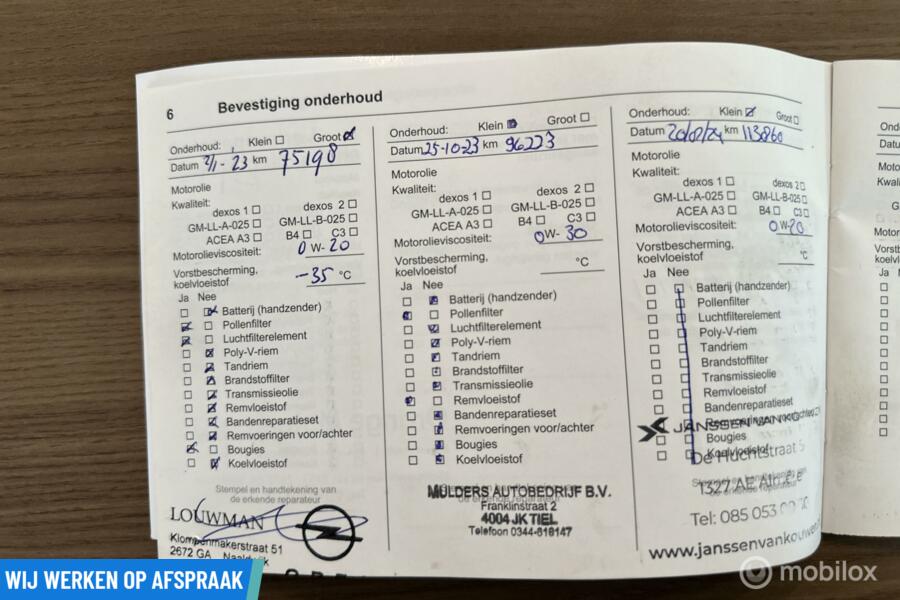 6 Bevestiging onderhoud
Onderhoud: Klein Groot
Datum 2/1-23 km 75198
Motorolie
Kwaliteit:
dexos 1 dexos 2
GM-LL-A-025 GM-LL-B-025
ACEA A3 B4 C3
Motorolieviscositeit: 0 W-20
Vorstbescherming,
koelvloeistof -35 °C
Ja Nee
Batterij (handzender)
Pollenfilter
Luchtfilterelement
Poly-V-riem
Tandriem
Brandstoffilter
Transmissieolie
Remvloeistof
Bandenreparatieset
Remvoeringen voor/achter
Bougies
Koelvloeistof
Stempel en handtekening van
de erkende reparateur
LOUWMAN
Klompenmakerstraat 51
2672 GA Naaldwijk
OPEL
Onderhoud: Klein Groot
Datum 25-10-23 km 96223
Motorolie
Kwaliteit:
dexos 1 dexos 2
GM-LL-A-025 GM-LL-B-025
ACEA A3 B4 C3
Motorolieviscositeit: 0W-30
Vorstbescherming,
koelvloeistof °C
Ja Nee
Batterij (handzender)
Pollenfilter
Luchtfilterelement
Poly-V-riem
Tandriem
Brandstoffilter
Transmissieolie
Remvloeistof
Bandenreparatieset
Remvoeringen voor/achter
Bougies
Koelvloeistof
MULDERS AUTOBEDRIJF B.V.
Franklinstraat 2
4004 JK TIEL
Telefoon 0344-618147
Onderhoud: Klein Groot
Datum km 113860
Motorolie
Kwaliteit:
dexos 1 dexos 2
GM-LL-A-025 GM-LL-B-025
ACEA A3 B4 C3
Motorolieviscositeit: 0W-20
Vorstbescherming,
koelvloeistof °C
Ja Nee
Batterij (handzender)
Pollenfilter
Luchtfilterelement
Poly-V-riem
Tandriem
Brandstoffilter
Transmissieolie
Remvloeistof
Bandenreparatieset
Remvoeringen voor/achter
JANSSEN VAN KO
Bougies
Koelvloeistof
De Huchtstraat 5
1327 AE
Tel: 085 053
www.janssenvankouwen
WIJ WERKEN OP AFSPRAAK
mobilox